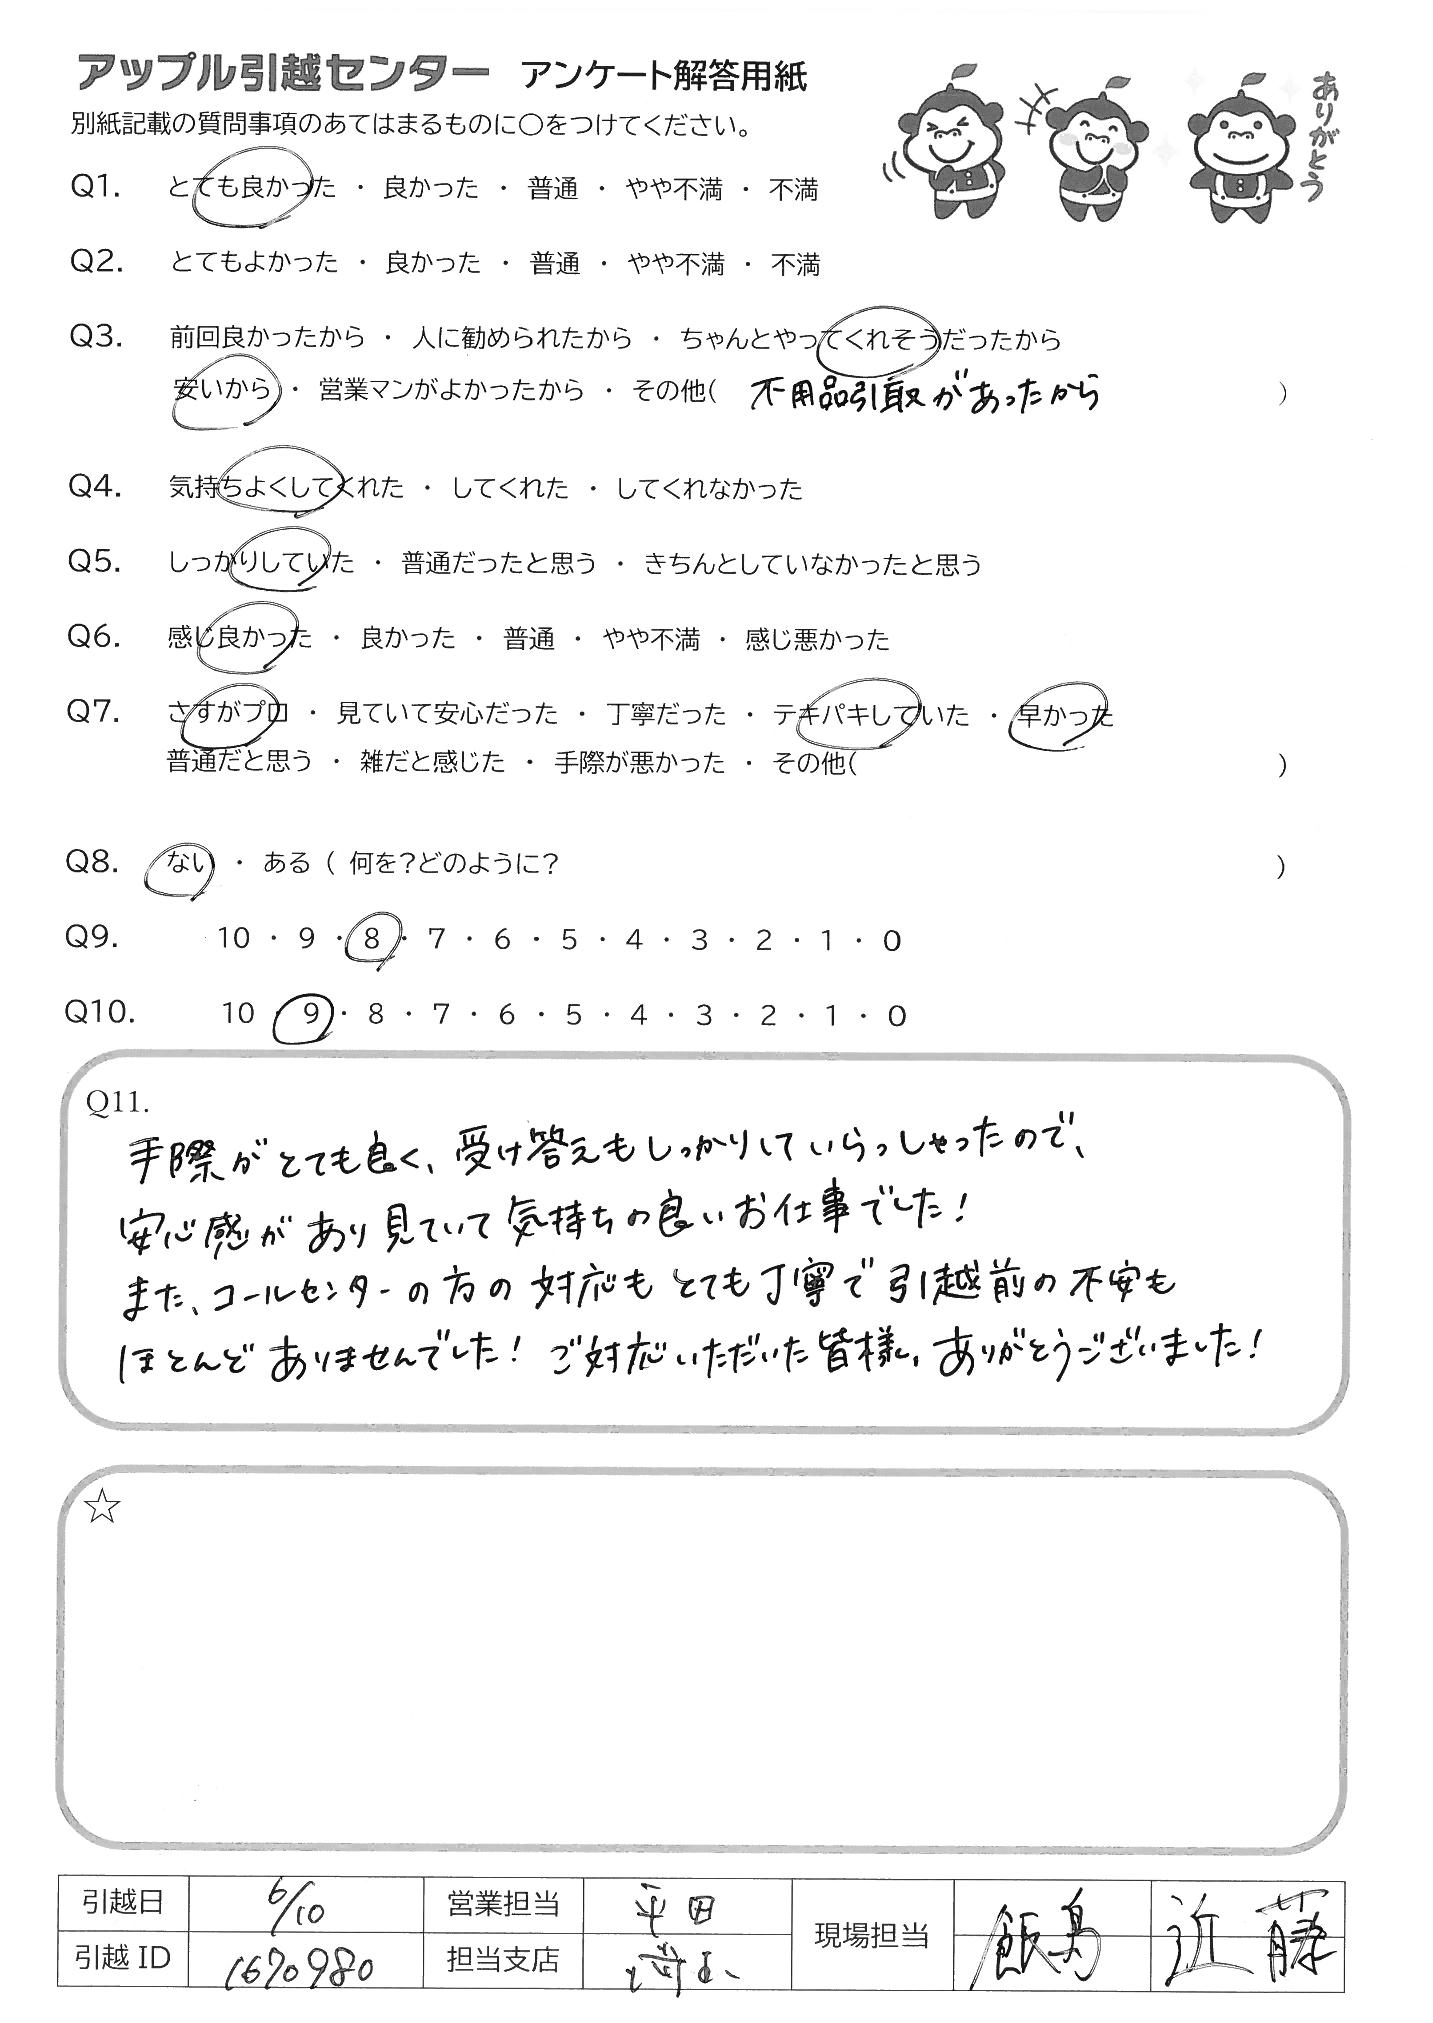 アップル引越センター アンケート解答用紙
別紙記載の質問事項のあてはまるものに〇をつけてください。
ありがとう
Q1. とても良かった ・ 良かった ・ 普通 ・ やや不満 ・ 不満
Q2. とてもよかった ・ 良かった ・ 普通 ・ やや不満 ・ 不満
Q3. 前回良かったから ・ 人に勧められたから ・ ちゃんとやってくれそうだったから
安いから ・ 営業マンがよかったから ・ その他( 不用品引取があったから )
Q4. 気持ちよくしてくれた ・ してくれた ・ してくれなかった
Q5. しっかりしていた ・ 普通だったと思う ・ きちんとしていなかったと思う
Q6. 感じ良かった ・ 良かった ・ 普通 ・ やや不満 ・ 感じ悪かった
Q7. さすがプロ ・ 見ていて安心だった ・ 丁寧だった ・ テキパキしていた ・ 早かった
普通だと思う ・ 雑だと感じた ・ 手際が悪かった ・ その他( )
Q8. ない ・ ある ( 何を?どのように? )
Q9. 10 ・ 9 ・ 8 ・ 7 ・ 6 ・ 5 ・ 4 ・ 3 ・ 2 ・ 1 ・ 0
Q10. 10 ・ 9 ・ 8 ・ 7 ・ 6 ・ 5 ・ 4 ・ 3 ・ 2 ・ 1 ・ 0
Q11.
手際がとても良く、受け答えもしっかりしていらっしゃったので、
安心感があり見ていて気持ちの良いお仕事でした!
また、コールセンターの方の対応もとても丁寧で引越前の不安も
ほとんどありませんでした! ご対応いただいた皆様、ありがとうございました!
☆
引越日 6/10 営業担当 平田 現場担当 飯島 近藤
引越 ID 1670980 担当支店